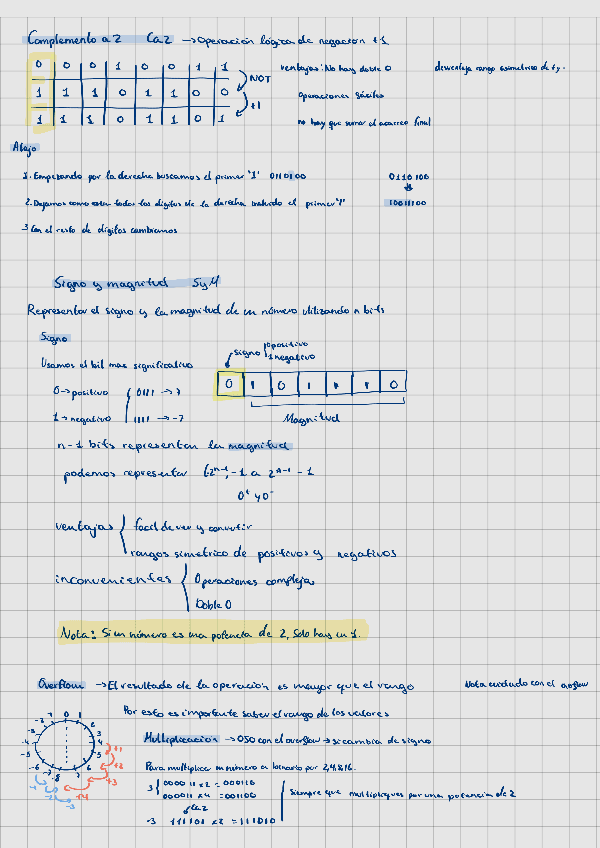 Complemento a 2 Ca2 → Operación lógica de negación +1
0 0 0 1 0 0 1 1
NOT
1 1 1 0 1 1 0 0
+1
1 1 1 0 1 1 0 1
ventajas: No hay doble 0
desventaja rango asimetrico de + y -
operaciones fáciles
no hay que sumar el acarreo final
Atajo
1. Empezando por la derecha buscamos el primer "1" 0110100
0110100
2. Dejamos como estan todos los dígitos de la derecha incluido el primer "1"
10011100
3 Con el resto de dígitos cambiamos
Signo y magnitud SyM
Representar el signo y la magnitud de un número utilizando n bits
Signo
signo
0 positivo
1 negativo
Usamos el bit mas significativo
0 1 0 1 1 1 0
0 → positivo 0111 → 7
1 → negativo 1111 → -7
Magnitud
n-1 bits representan la magnitud
podemos representar (-2ⁿ⁻¹)-1 a 2ⁿ⁻¹ - 1
0⁺ y 0⁻
ventajas
facil de ver y convertir
rangos simetrico de positivos y negativos
inconvenientes
Operaciones complejas
Doble 0
Nota: Si un número es una potencia de 2, solo hay un 1.
Overflow → El resultado de la operación es mayor que el rango
Nota cuidado con el overflow
Por esto es importante saber el rango de los valores
Multiplicación → OJO con el overflow → si cambia de signo
Para multiplicar un número a binario por 2,4,8,16.
3
000011 x2 = 000110
000011 x4 = 001100
Siempre que multipliques por una potencia de 2
Ca2
-3 111101 x2 = 111010